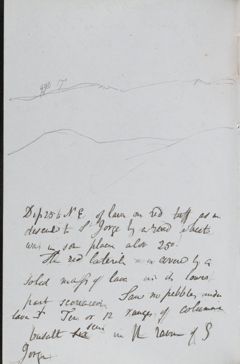 Dip 25 to N E. of lava on red tuff, as we
descend to St Jorge by a road which
was in some places also 25°.
The red laterite is covered by a
solid mass of lava in its lower
part scoriaceous. Saw no pebbles under
lava. Ten or 12 ranges of columnar
basalt seen in N. ravine of S
Jorge